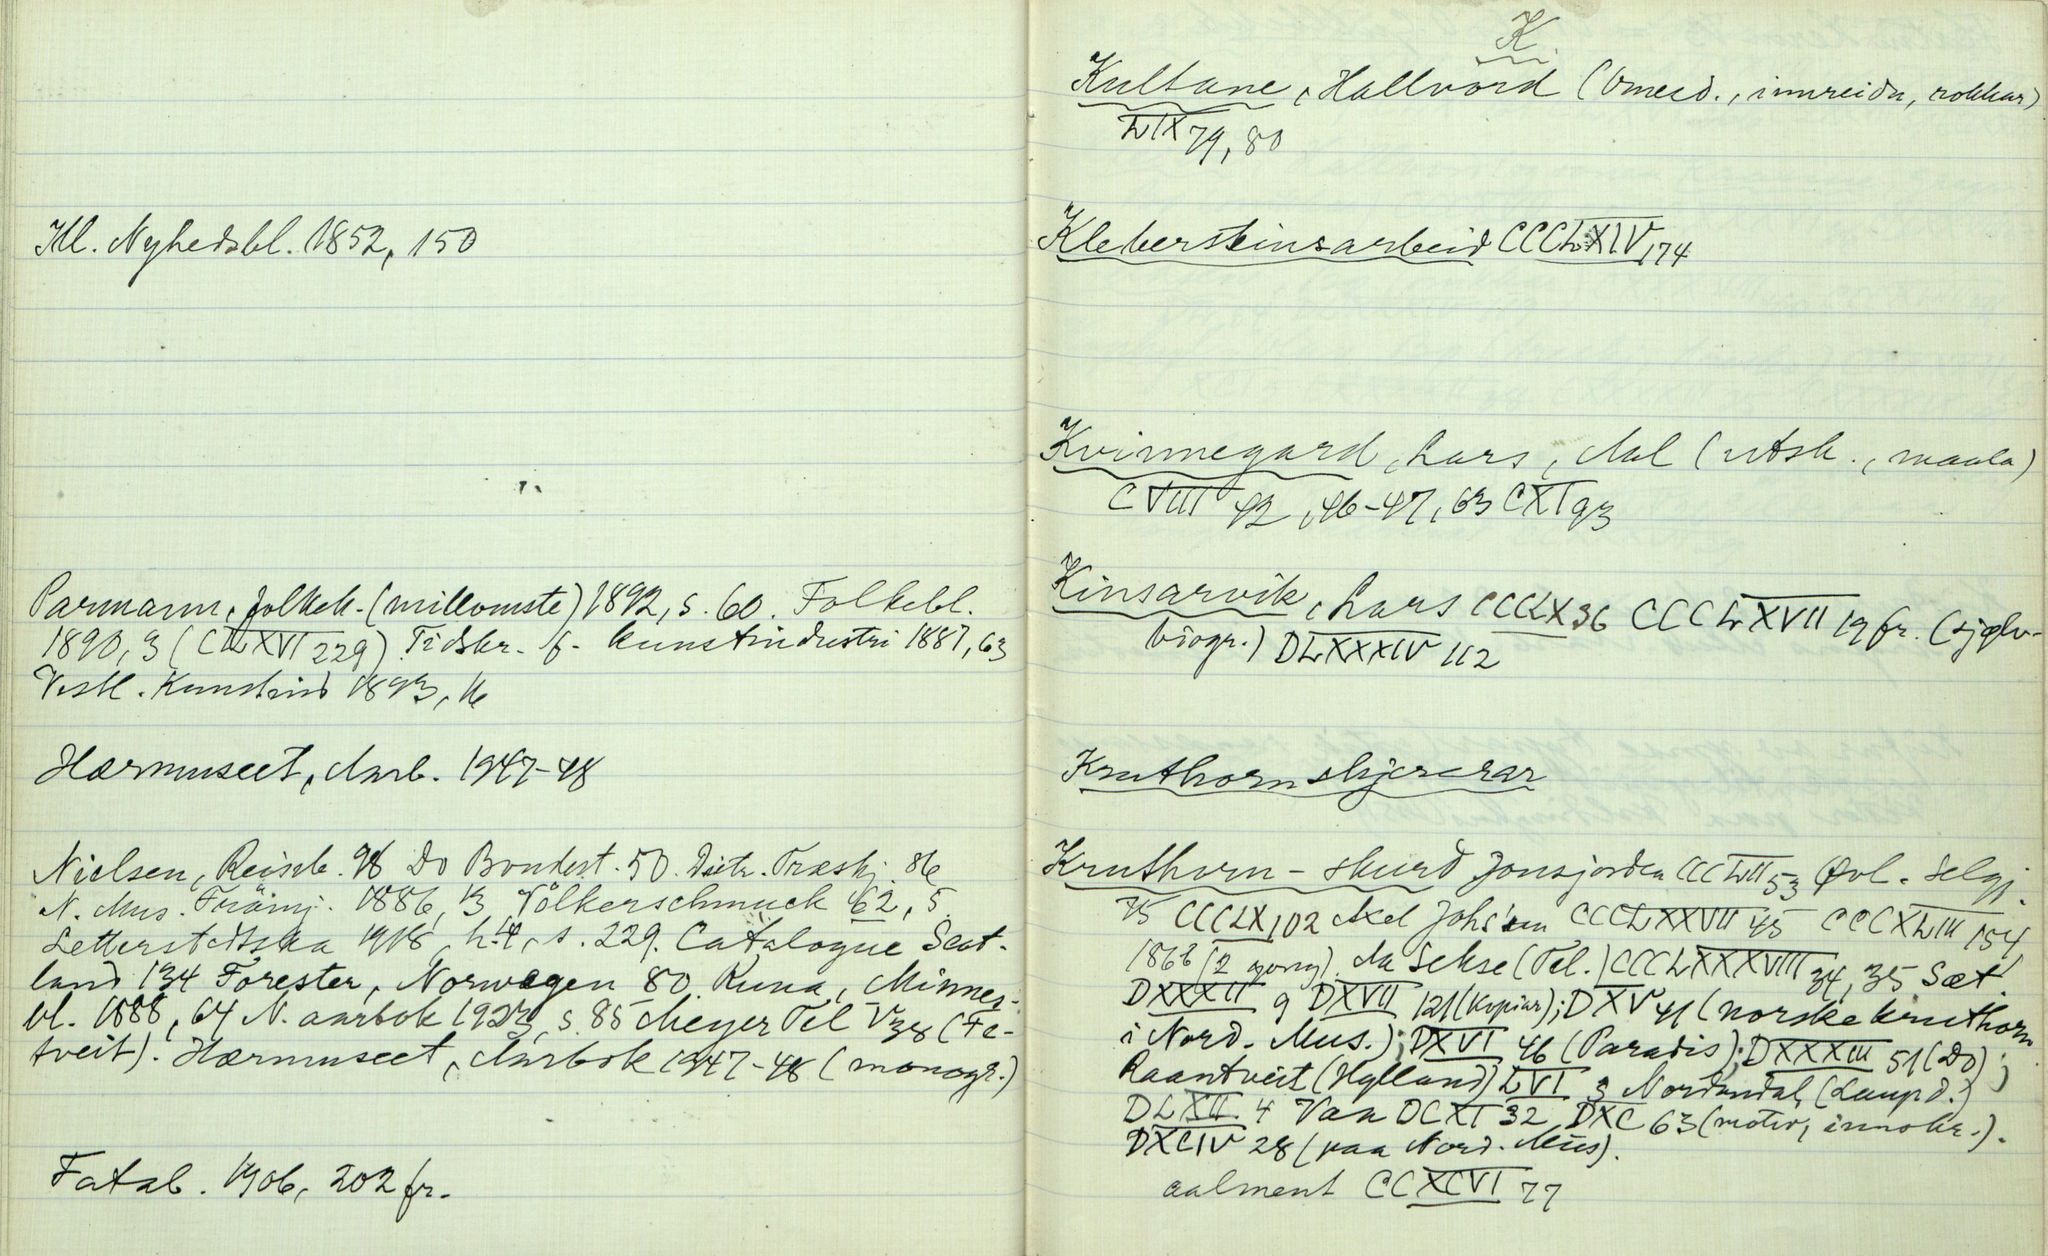 Ill. Nyhedsbl. 1852, 150
Parmann, folkeh. (millomste) 1892, s. 60. Folkebl.
1890, 3 (CLXVI 229) Tidskr. f. kunstindustri 1887, 63
Vestl. Kunstind 1893, 16
Hærmuseet, Aarb. 1947-48
Nielsen, Reiseh. 98 Do Bondest. 50. Dietr. Træskj. 86
N. Mus. Främj. 1886, 13 Völkerschmuck 62, 5
Letterstedtska 1918, h. 4, s. 229. Catalogue Scot-
land 134 Forester, Norwegen 80. Runa, Minnes-
bl. 1888, 64 N. aarbok 1923, s. 85 Meyer Tel V 38 (Fe-
tveit). Hærmuseet, Aarbok 1947-48 (monogr.)
Fatab. 1906, 202 fr.
K
Kultane, Hallvord (Omesd., innreidn, rokkar)
LIX 79, 80
Klebersteinsarbeid CCCLXIV 174
Kvinnegard, Lars, Aal (utsk., maala)
CVIII 42, 46-47, 63 CXI 93
Kinsarvik, Lars CCCLX 36 CCCLXVII 19 fr. (sjølv-
biogr.) DLXXXIV 112
Kruthornskjerarar
Kruthorn - skurd Jonsjorden CCCLII 53 Øvl. Selgj.
75 CCCLX 102 Axel Johs'en CCCLXXVII 45 CCCXLIII 154
1868 (2 gong) Aa Sekse (Tel.) CCCLXXXVIII 34, 35 Sæt.
DXXXII 9 DXVII 121 (kopiar); DXV 41 (norske kruthorn
i Nord. Mus.); DXVI 46 (Paradis); DXXXIII 51 (Do);
Raantveit (Hylland) LVI 3 Nordandal, (Laupd.)
DLXII 4 Vaa DCXI 32 DXC 63 (motiv, innskr.).
DXCIV 28 (paa Nord. Mus).
aalment CCXCVI 77